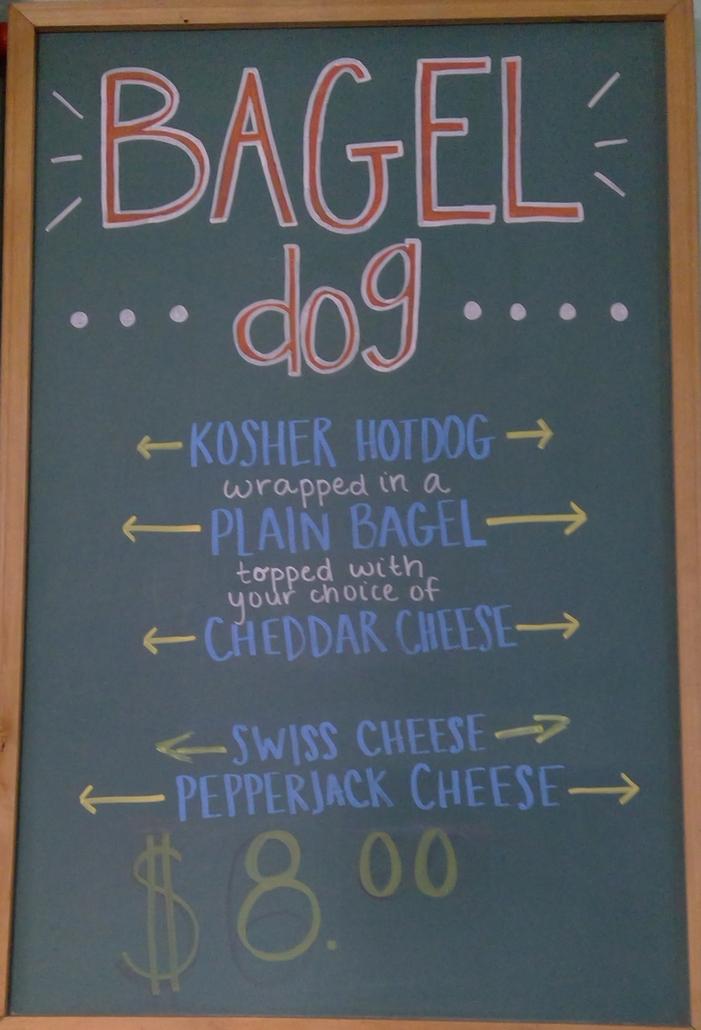 BAGEL
dog
KOSHER HOTDOG
wrapped in a
PLAIN BAGEL
topped with
your choice of
CHEDDAR CHEESE
SWISS CHEESE
PEPPERJACK CHEESE
$8.00